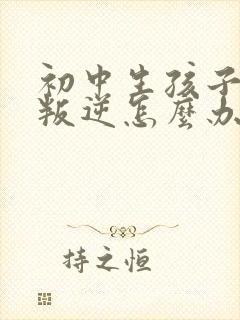 初中生孩子
叛逆怎麽办
持之恒